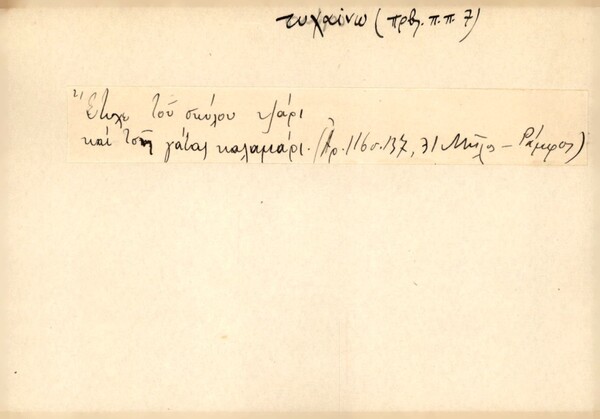 τυχαίνω (πρβλ. π.π 7)
Ἔτυχε τοῦ σκύλου ψάρι
καὶ τσῆ γάτας καλαμάρι. (Ἀρ. 116 σ. 137, 31 Μῆλος – Ράμφος)